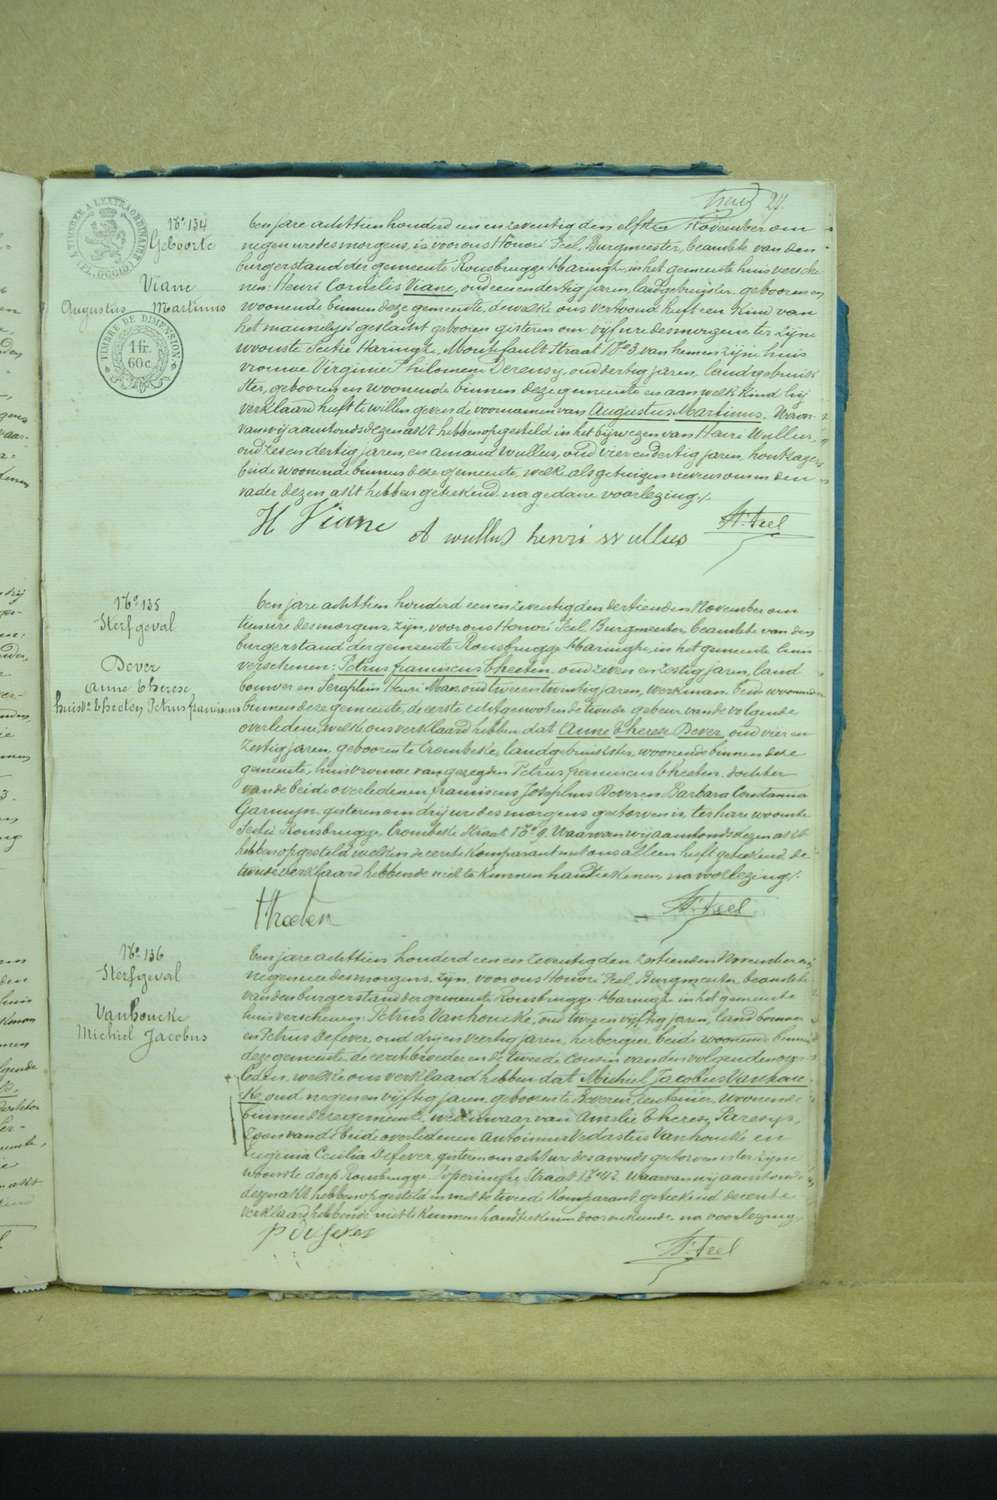 24.
TIMBRE A L'EXTRAORDINAIRE
(FL. OCCID.)
N° 134
Geboorte
Viane
Augustus Martinus
TIMBRE DE DIMENSION.
1 fr.
60 c.
Een jare achttien honderd een en zeventig den elfsten November om
negen ure des morgens, is voor ons Honoré Feel, Burgmeester, beambte van den
burgerstand der gemeente Rousbrugge Haringhe, in het gemeente huis versche-
nen: Henri Cornelis Viane, oud een en dertig jaren, landgebruijker, geboren en
woonende binnen deze gemeente, dewelke ons vertoond heeft een Kind van
het mannelijk geslacht geboren gisteren om vijf ure des morgens te zijne
woonste Sectie Haringhe, Montefault Straat N° 3 van hem en zijne huis
vrouwe Virginie Philomene Derensy, oud dertig jaren, landgebruik
ster, geboren en woonende binnen deze gemeente en aan welk Kind hij
verklaard heeft te willen geven de voornamen van Augustus Martinus. Waar-
van wij aanstonds dezen akt hebben opgesteld in het bijwezen van Henri Wullus,
oud zes en dertig jaren, en Amand Wullus, oud vier en dertig jaren, houtzagers
beide woonende binnen deze gemeente, welke als getuigen nevens ons en den
vader dezen akt hebben geteekend na gedane voorlezing./.
H Viane A wullus henri wullus Ht. Feel
N° 135
Sterfgeval
Dever
Anne Therese,
huisv. Theeten Petrus franciscus
Een jare achttien honderd een en zeventig den dertienden November om
tien ure des morgens, zijn voor ons Honoré Feel, Burgmeester, beambte van den
burgerstand der gemeente Rousbrugge Haringhe, in het gemeente huis
verschenen: Petrus franciscus Theeten, oud zeven en zestig jaren, land
bouwer en Seraphin Henri Maes, oud twee en twintig jaren, werkman, beide woonende
binnen deze gemeente, de eerste echtgenoot en de tweede gebuur van de volgende
overledene, welke ons verklaard hebben dat Anne Therese Dever, oud vier en
zestig jaren, geboren te Crombeke, landgebruikster, woonende binnen deze
gemeente, huisvrouwe van gezegden Petrus franciscus Theeten, dochter
van de beide overledenen franciscus Josephus Dever en Barbara Constantia
Garmyn, gisteren om drij ure des morgens gestorven is, ter hare woonste
Sectie Rousbrugge, Crombeke Straat N° 9. Waarvan wij aanstonds dezen akt
hebben opgesteld, welken de eerste komparant met ons alleen heeft geteekend, de
tweede verklaard hebbende niet te kunnen handteekenen, na voorlezing./.
theeten Ht. Feel
N° 136
Sterfgeval
Vanhoucke
Michiel Jacobus
Een jare achttien honderd een en zeventig den zestienden November om
negen ure des morgens, zijn voor ons Honoré Feel, Burgmeester, beambte
van den burgerstand der gemeente Rousbrugge Haringhe, in het gemeente
huis verschenen: Petrus Vanhoucke, oud twee en vijftig jaren, landbouwer
en Petrus Defever, oud drij en veertig jaren, herbergier, beide woonende binnen
deze gemeente, de eerste broeder en de tweede cousin van den volgenden over-
leden, welke ons verklaard hebben dat Michiel Jacobus Vanhouc-
ke, oud negen en vijftig jaren, geboren te Beveren, rentenier, woonende
binnen deze gemeente, weduwaar van Amelie Therese Paresys,
Zoon van de beide overledenen Antoinius Vedastus Vanhoucke en
Eugenia Cecilia Defever, gisteren om acht ure des avonds gestorven is ter zijne
woonste dorp Rousbrugge, Poperinghe Straat N° 42. Waarvan wij aanstonds
dezen akt hebben opgesteld en met de tweede komparant geteekend, de eerste
verklaard hebbende niet te kunnen handteekenen door onkunde, na voorlezing.
P defever
Ht. Feel